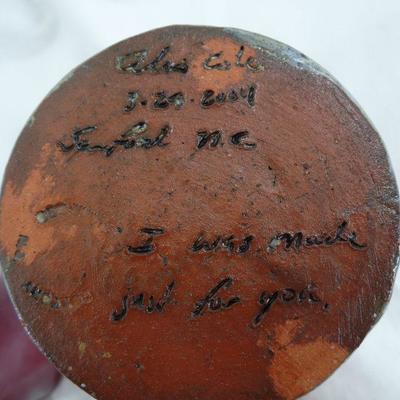 Cole
3.29.2004
Sanford N.C
I was Made
just for you.